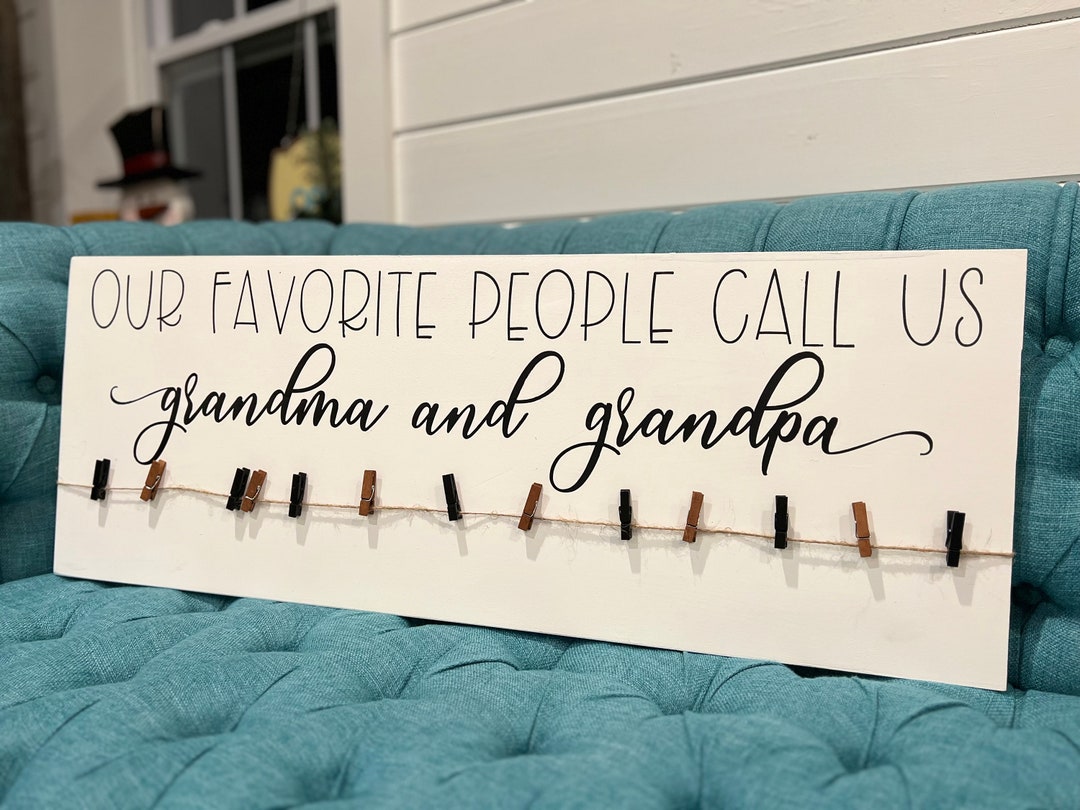 OUR FAVORITE PEOPLE CALL US
grandma and grandpa